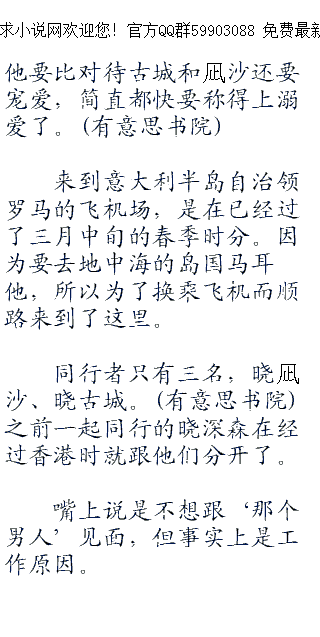 求小说网欢迎您! 官方QQ群59903088 免费最新
他要比对待古城和凪沙还要
宠爱，简直都快要称得上溺
爱了。(有意思书院)
来到意大利半岛自治领
罗马的飞机场，是在已经过
了三月中旬的春季时分。因
为要去地中海的岛国马耳
他，所以为了换乘飞机而顺
路来到了这里。
同行者只有三名，晓凪
沙、晓古城。(有意思书院)
之前一起同行的晓深森在经
过香港时就跟他们分开了。
嘴上说是不想跟‘那个
男人’见面，但事实上是工
作原因。